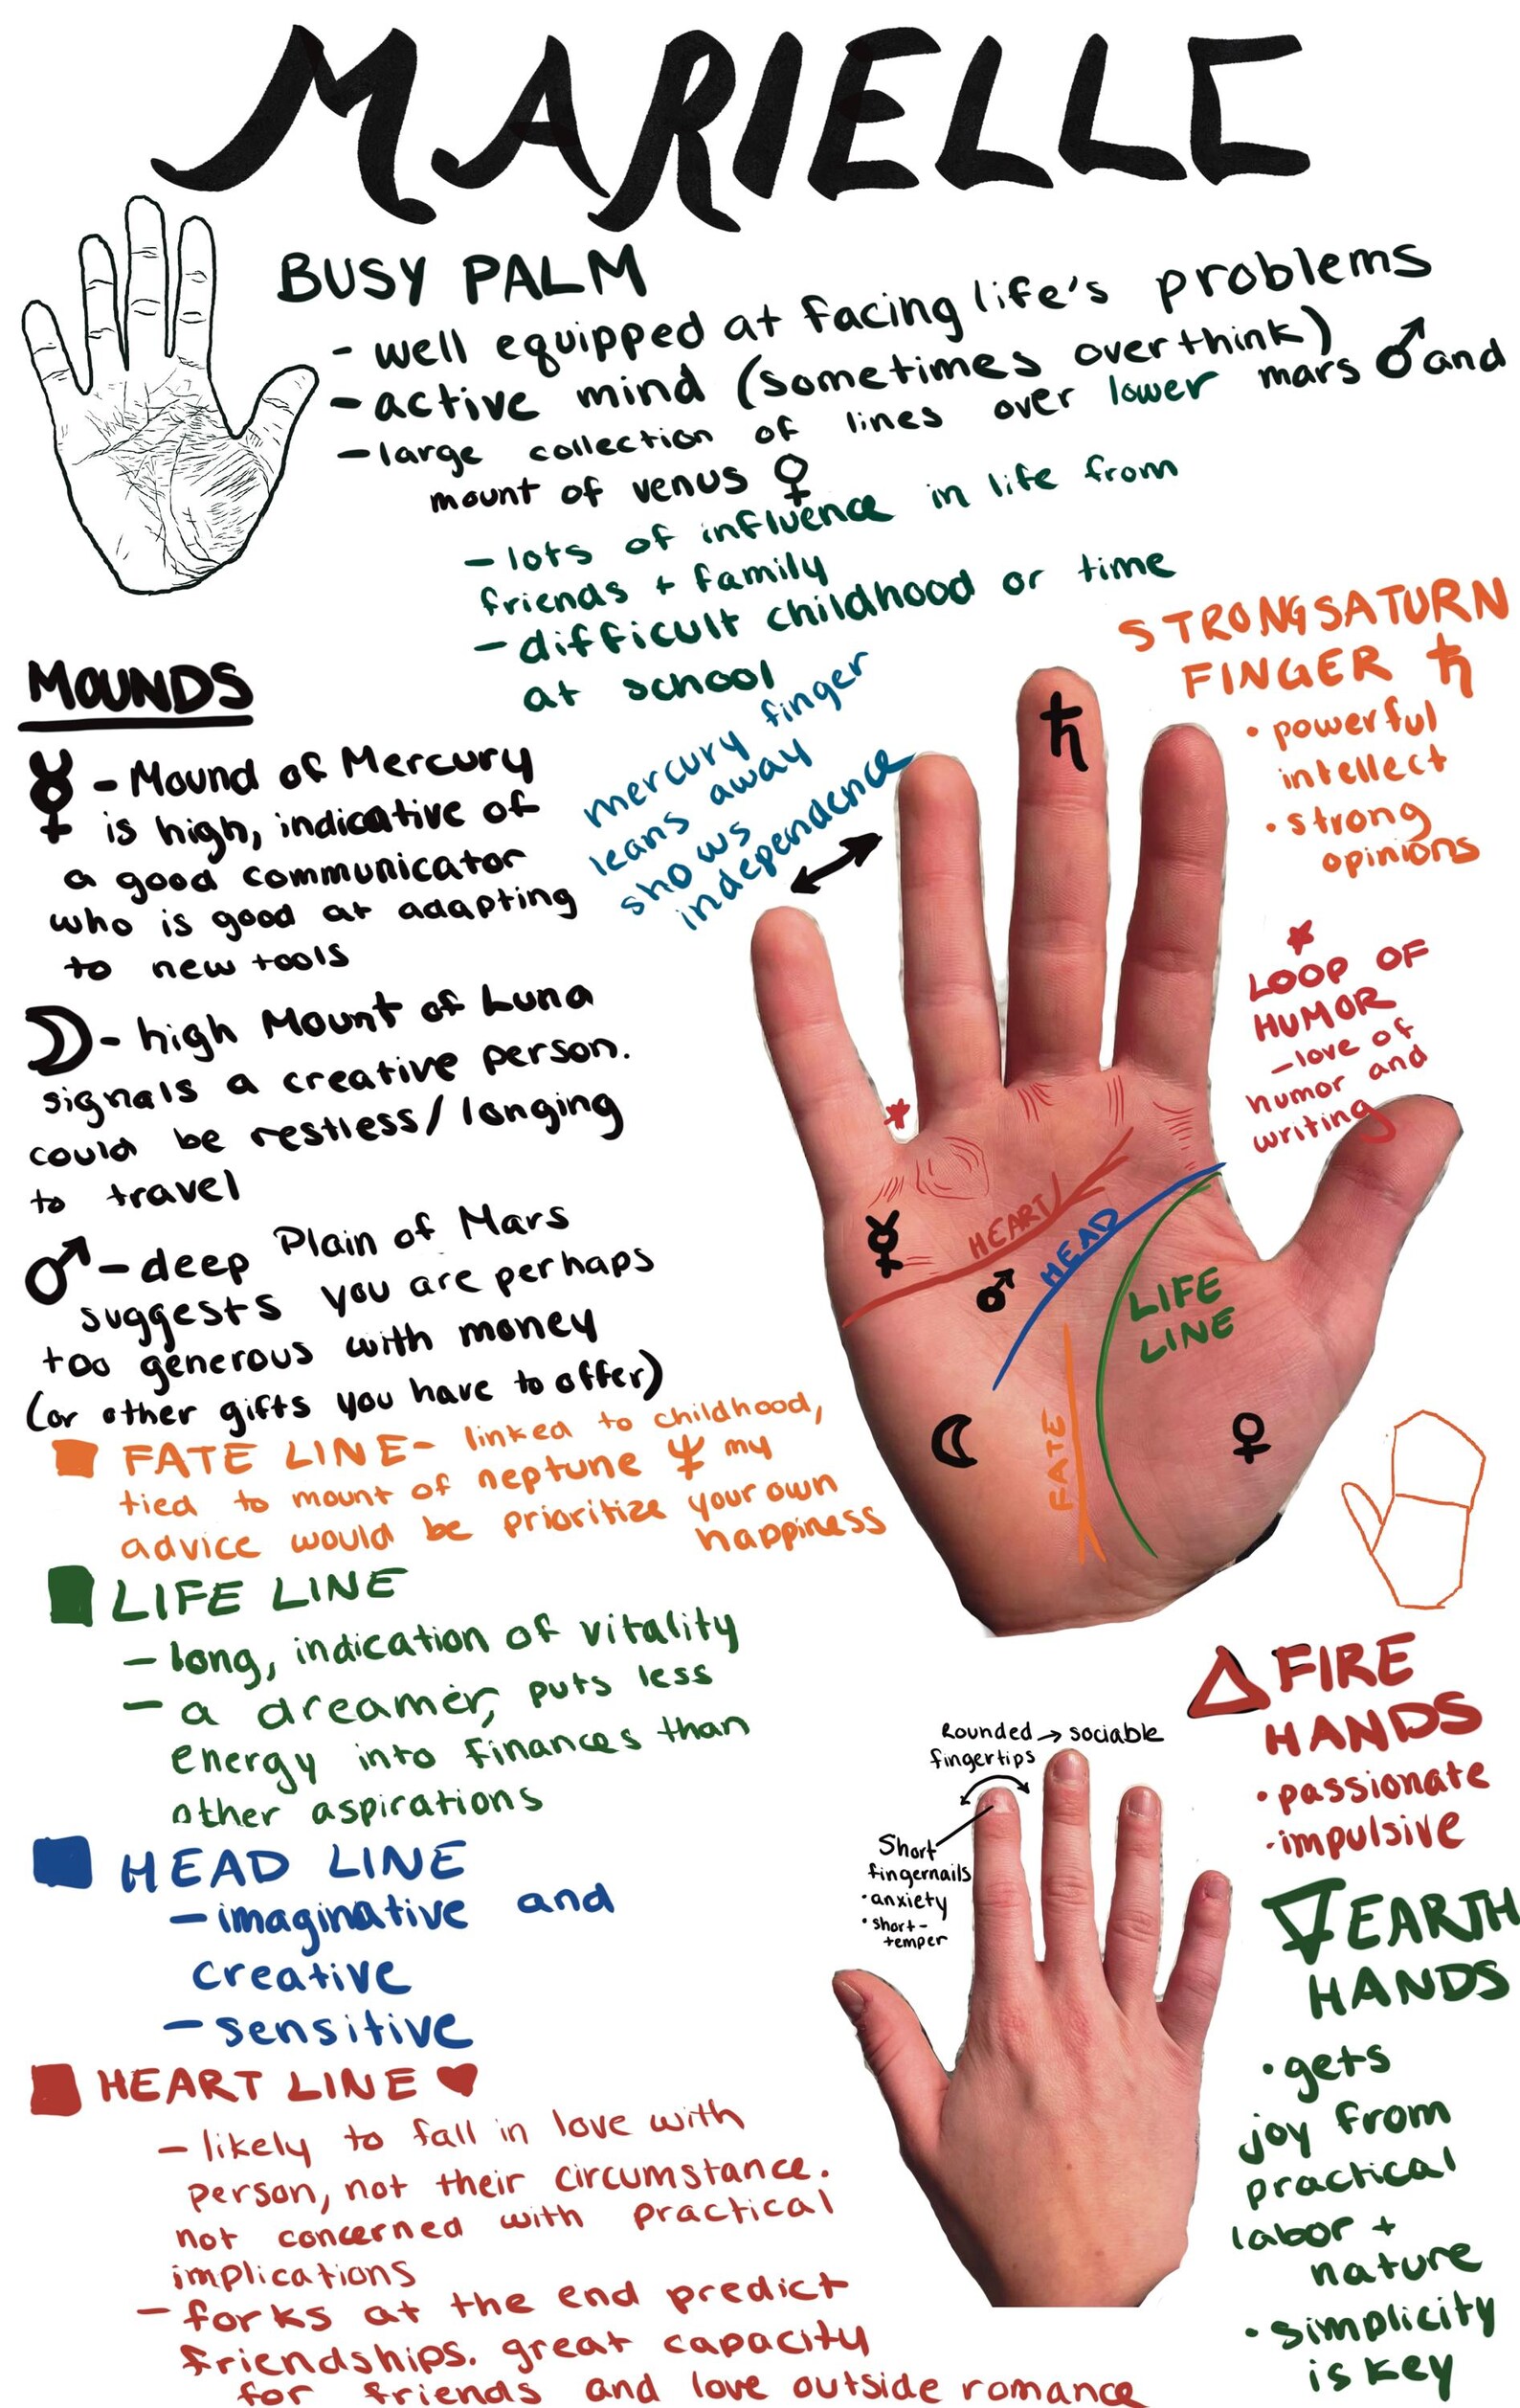 MARIELLE
BUSY PALM
- well equipped at facing life's problems
- active mind (sometimes overthink)
- large collection of lines over lower mars ♂ and
mount of venus ♀
- lots of influence in life from
friends + family
- difficult childhood or time
at school
MOUNDS
☿ - Mound of Mercury
is high, indicative of
a good communicator
who is good at adapting
to new tools
☽ - high Mount of Luna
signals a creative person.
could be restless/longing
to travel
♂ - deep Plain of Mars
suggests you are perhaps
too generous with money
(or other gifts you have to offer)
mercury finger
leans away
shows
independence
STRONG SATURN
FINGER ♄
• powerful
intellect
• strong
opinions
LOOP OF
HUMOR
- love of
humor and
writing
♄
☿
HEART
♂
HEAD
LIFE
LINE
☾
FATE
♀
FATE LINE - linked to childhood,
tied to mount of neptune ♆ my
advice would be prioritize your own
happiness
LIFE LINE
- long, indication of vitality
- a dreamer, puts less
energy into finances than
other aspirations
HEAD LINE
- imaginative and
creative
- sensitive
HEART LINE ♥
- likely to fall in love with
person, not their circumstance.
not concerned with practical
implications
- forks at the end predict
friendships. great capacity
for friends and love outside romance
Rounded → sociable
fingertips
Short
fingernails
• anxiety
• short-
temper
FIRE
HANDS
• passionate
• impulsive
EARTH
HANDS
• gets
joy from
practical
labor +
nature
• simplicity
is key